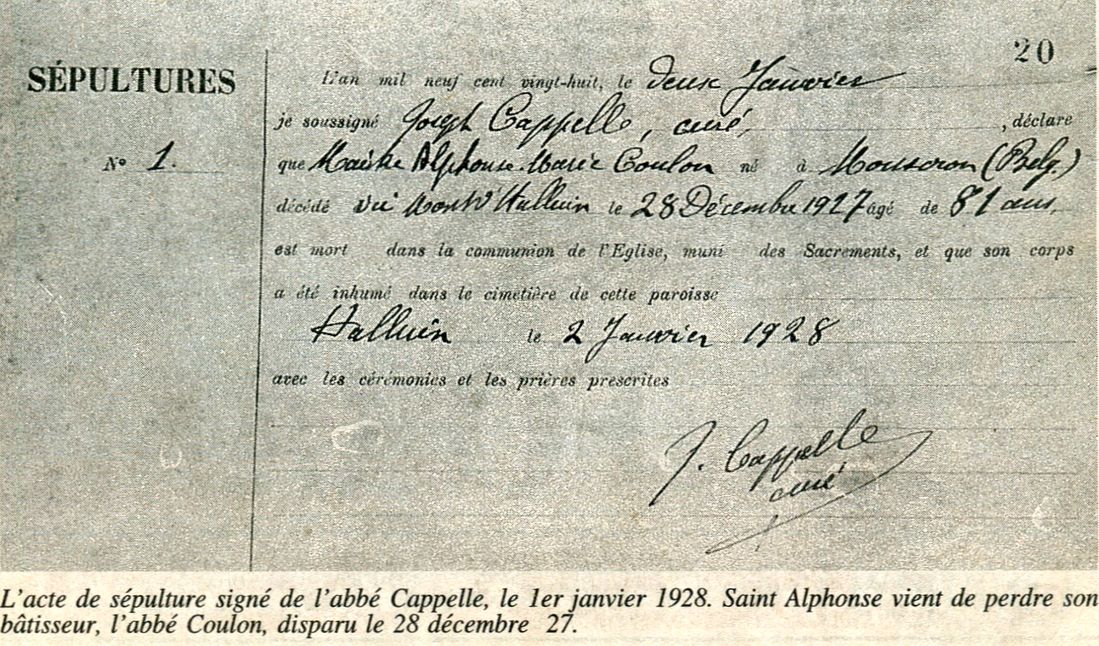 20
SÉPULTURES
N° 1.
L'an mil neuf cent vingt-huit, le deux Janvier
je soussigné Joseph Cappelle, curé, , déclare
que Maître Alphonse-Marie Coulon né à Mouscron (Belg.)
décédé au Mont d'Halluin le 28 Décembre 1927 âgé de 81 ans,
est mort dans la communion de l'Eglise, muni des Sacrements, et que son corps
a été inhumé dans le cimetière de cette paroisse
Halluin le 2 Janvier 1928
avec les cérémonies et les prières prescrites
J. Cappelle
curé
L'acte de sépulture signé de l'abbé Cappelle, le 1er janvier 1928. Saint Alphonse vient de perdre son
bâtisseur, l'abbé Coulon, disparu le 28 décembre 27.